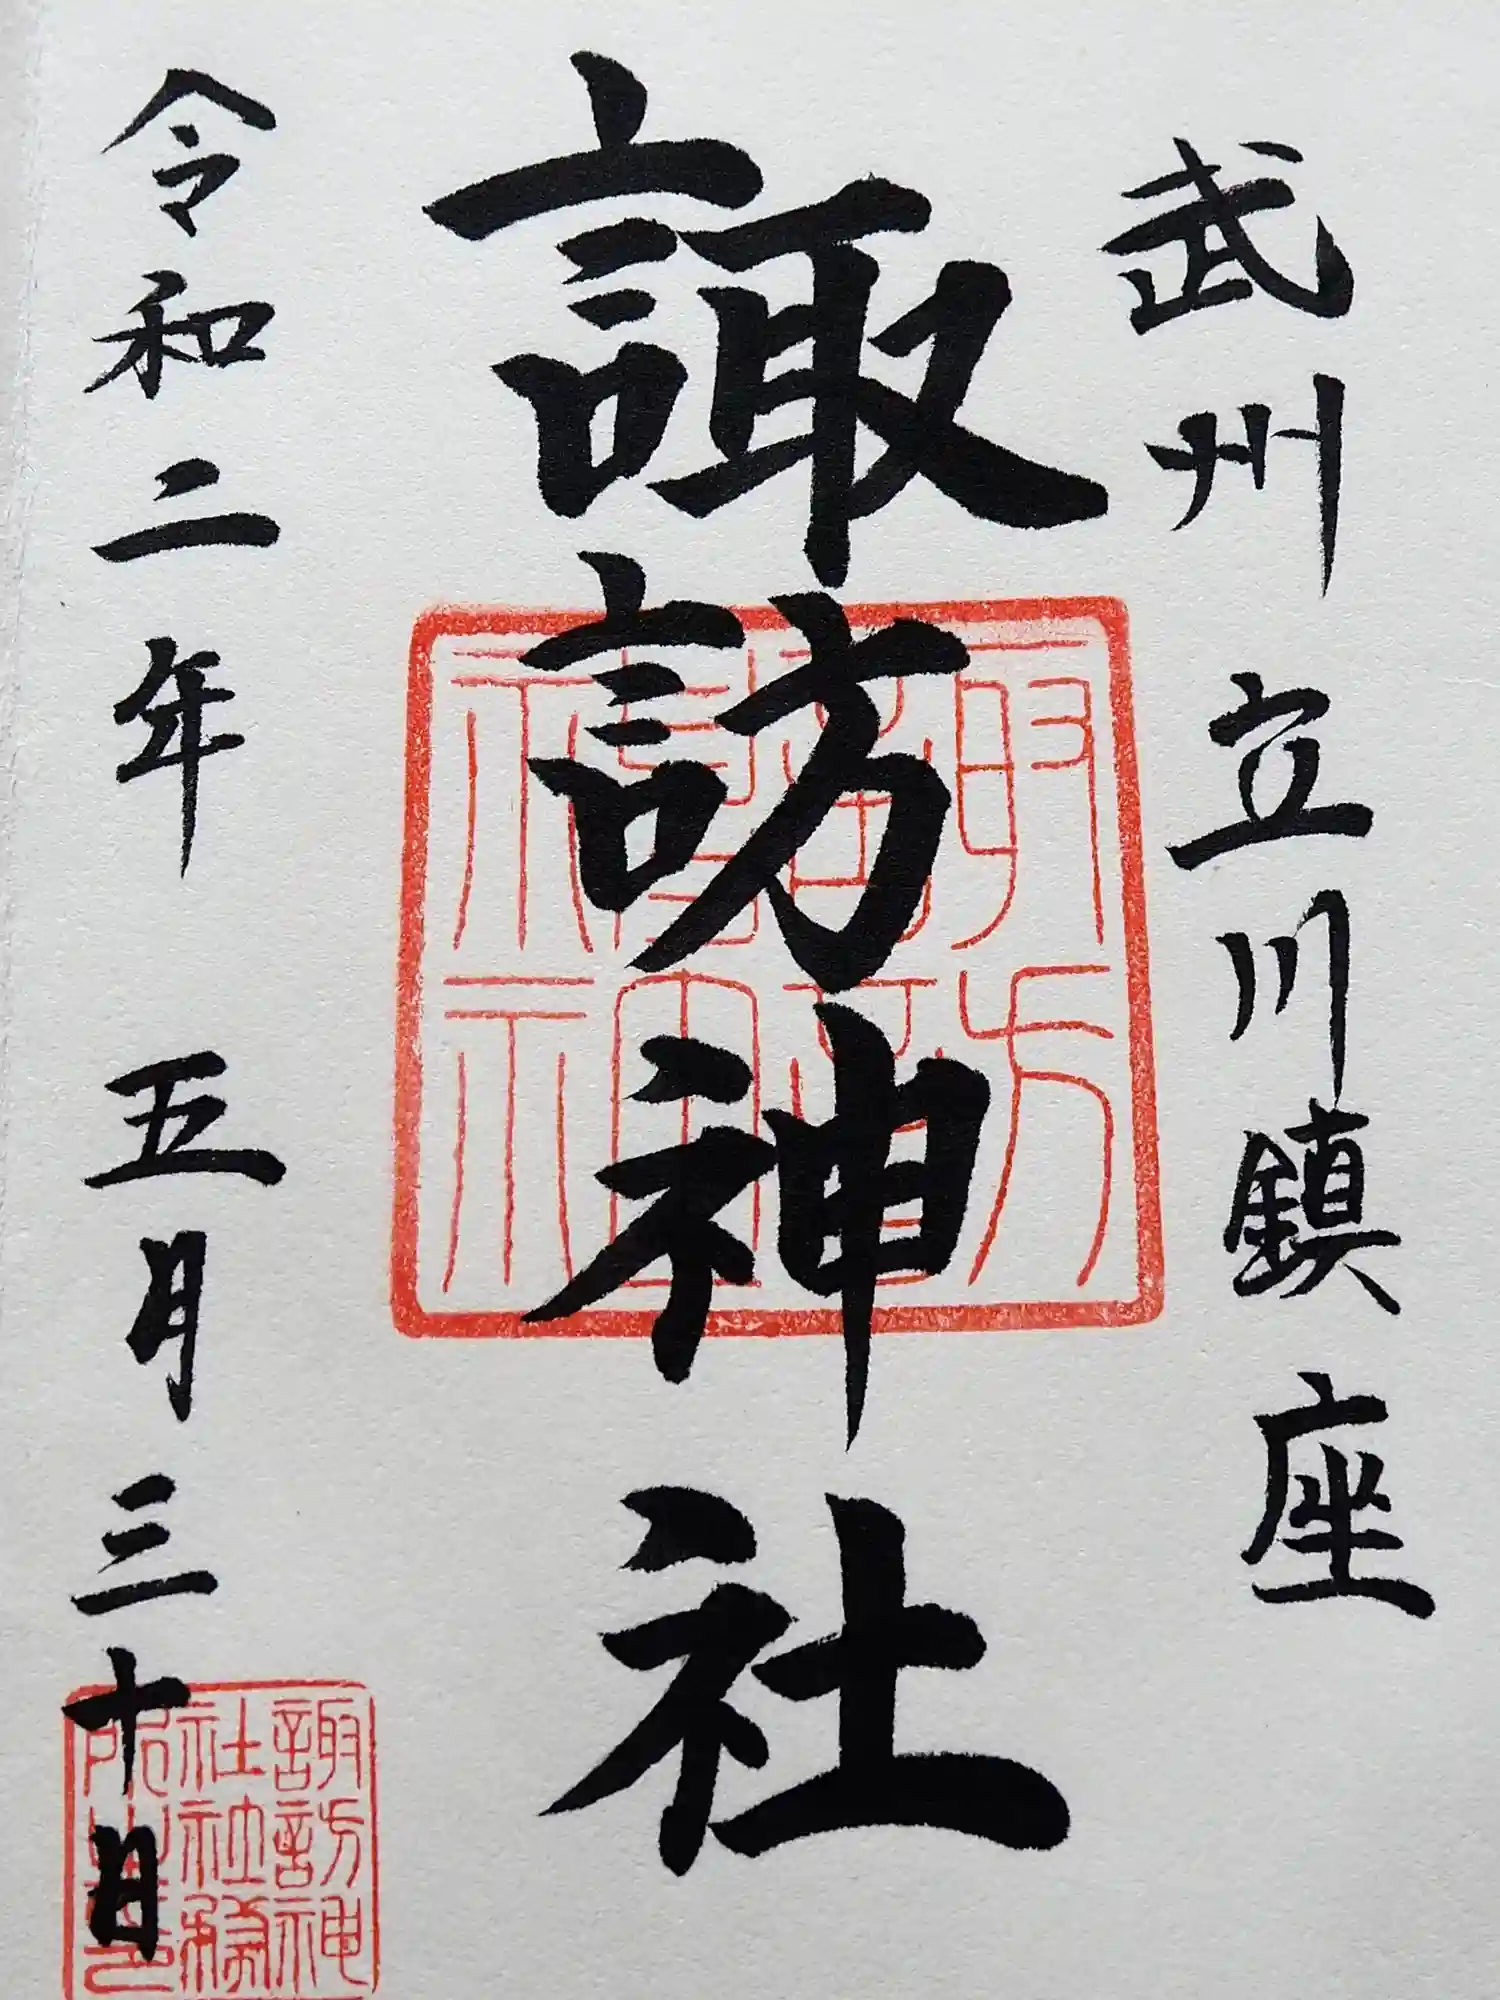 武州立川鎮座
諏訪神社
令和二年五月三十日
諏訪神
社社務